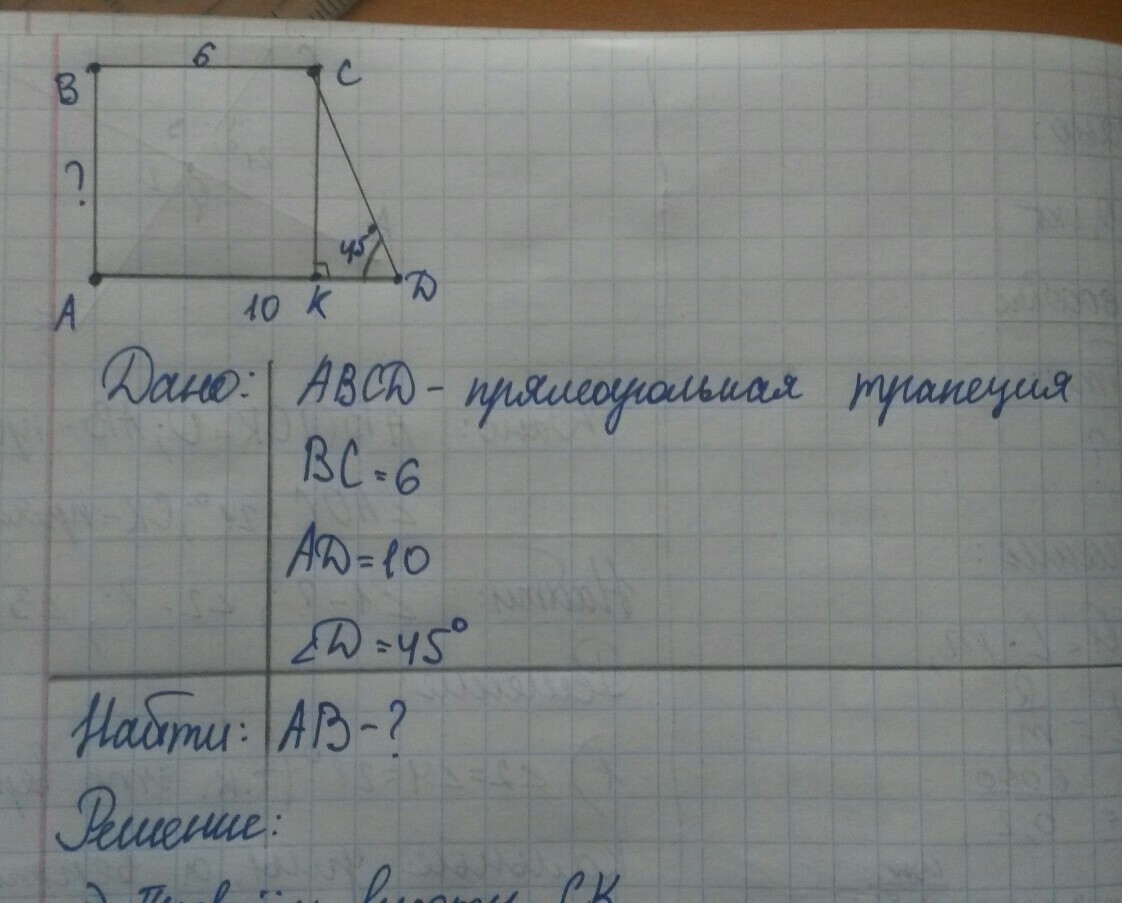 6
B
C
?
45°
A
10
K
D
Дано:
ABCD - прямоугольная трапеция
BC = 6
AD = 10
∠D = 45°
Найти:
AB - ?
Решение:
высоту CK